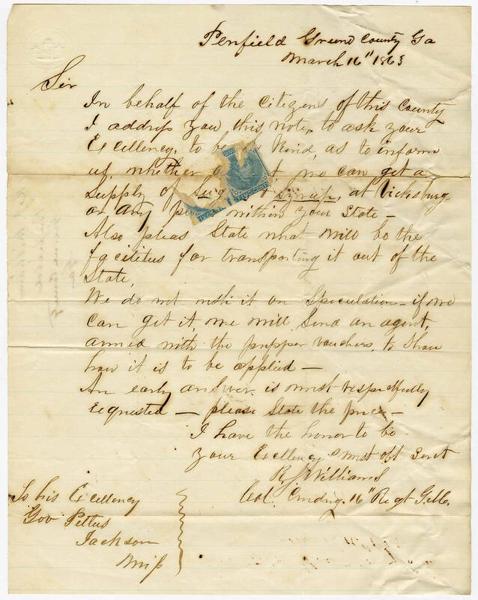 Penfield Green County Ga
March 16" 1863
Sir
In behalf of the Citizens of this County
I address you, this note, to ask your
Excellency, to be Kind, as to inform
us, whether or we can get a
Supply of Sugar Syrup, at Vicksburg
or any within your State —
Also pleas State what will be the
facilitus for transporting it out of the
State,
We do not wish it on Speculation — if we
can get it, we will, Send an agent,
armed with the propper vouchers, to Show
how it is to be applied —
An early answer is most respectfully
requested — please State the price —
I have the honor to be
your Excellency's most obt Servt
R J Williams
Col. Cmdng. 16" Regt G.M.
To his Excellency
Gov Pettus
Jackson
Miss